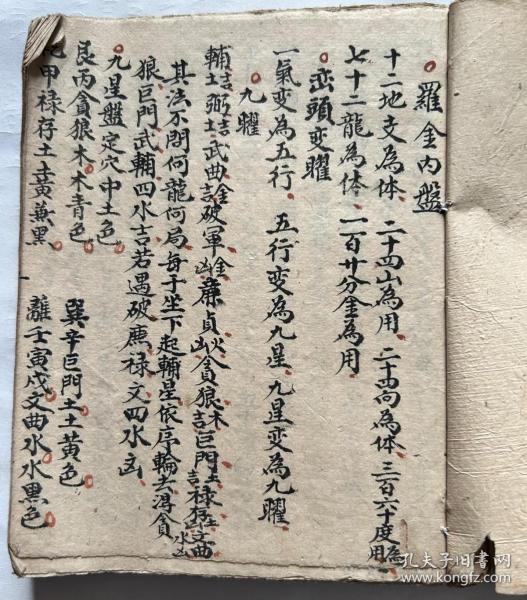 羅金內盤
十二地支為体 二十四山為用 二十四向為体 三百六十度為用
七十二龍為体 一百廿分金為用
巒頭变曜
一氣变為五行 五行变為九星 九星变為九曜
九曜
輔土吉弼土吉武曲金吉破軍金凶廉貞火凶貪狼木吉巨門土吉禄存土文曲水凶
其法不問何龍何局每于坐下起輔星依序輪去得貪
狼巨門武輔四水吉若遇破廉禄文四水凶
九星盤定穴中土色
艮丙貪狼木木青色 巽辛巨門土土黃色
甲禄存土黃兼黑 離壬寅戌文曲水水黑色
孔夫子旧书网
www.kongfz.com